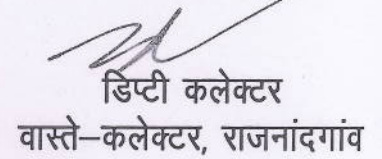 डिप्टी कलेक्टर
वास्ते–कलेक्टर, राजनांदगांव